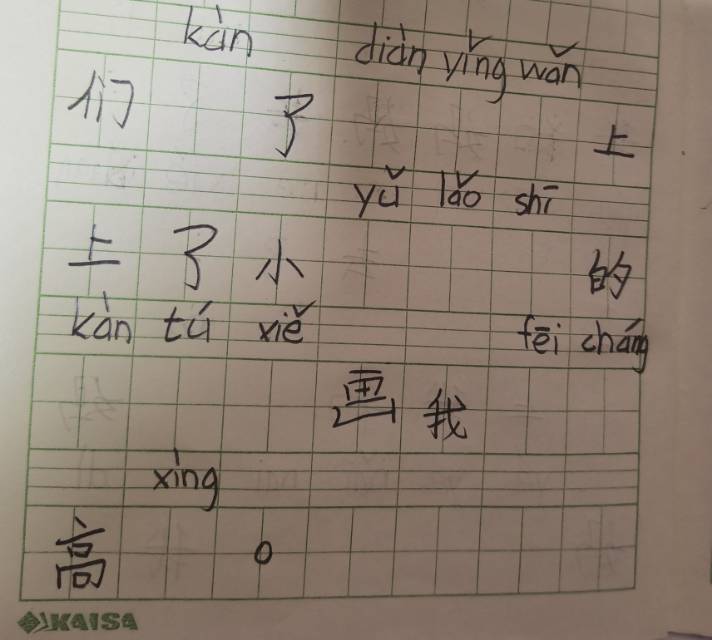 kàn diàn yǐng wǎn
们 了 上
yǔ lǎo shī
上 了 小 的
kàn tú xiě fēi cháng
画 我
xìng
高 。
KAISA